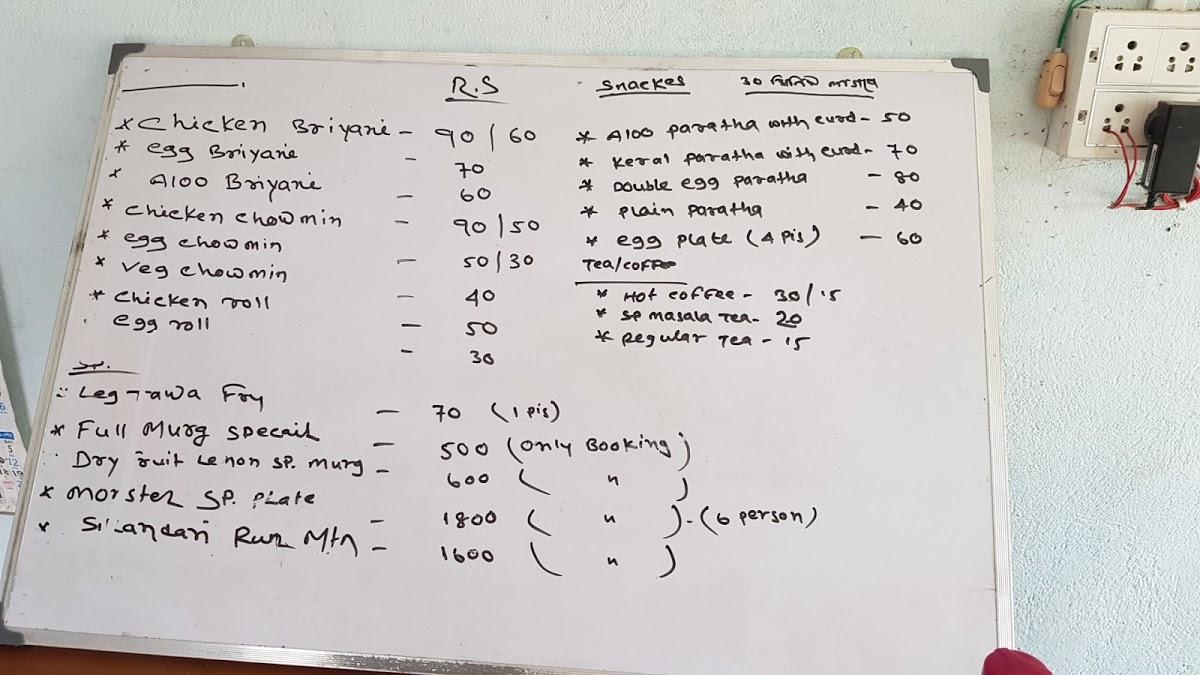 R.S
* Chicken Briyani - 90/60
* egg Briyani - 70
* Aloo Briyani - 60
* chicken chowmin - 90/50
* egg chowmin - 50/30
* veg chowmin - 40
* chicken roll - 50
egg roll - 30
SP.
Leg Tawa Fry - 70 (1 pis)
* Full Murg Specail - 500 (only Booking)
Dry ruit Lemon SP. Murg - 600 ( " )
* Monster SP. Plate - 1800 ( " ) - (6 person)
* Sikandari Mtn - 1600 ( " )
Snackes 30 মিনিট লাগবে
* Aloo paratha with curd - 50
* Keral paratha with curd - 70
* Double egg paratha - 80
* plain paratha - 40
* egg plate (4 pis) - 60
Tea/coffee
* Hot coffee - 30/15
* SP masala Tea - 20
* Regular Tea - 15